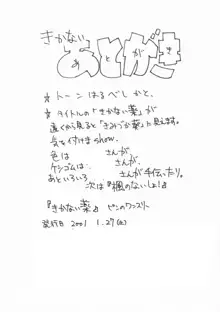 きかない
あとがき
★ トーンはるべしかと、
★ タイトルの「きかない薬」が
遠くから見ると「きみづか薬」に見えます。
気を付けまshow.
色は さんが
ケシゴムは、 さんが、
あといろいろ さんが手伝いたり。
次は『楓のないしょ!』
『きかない薬』 ピンのワンスリ、
発行日 2001. 1.27(土)